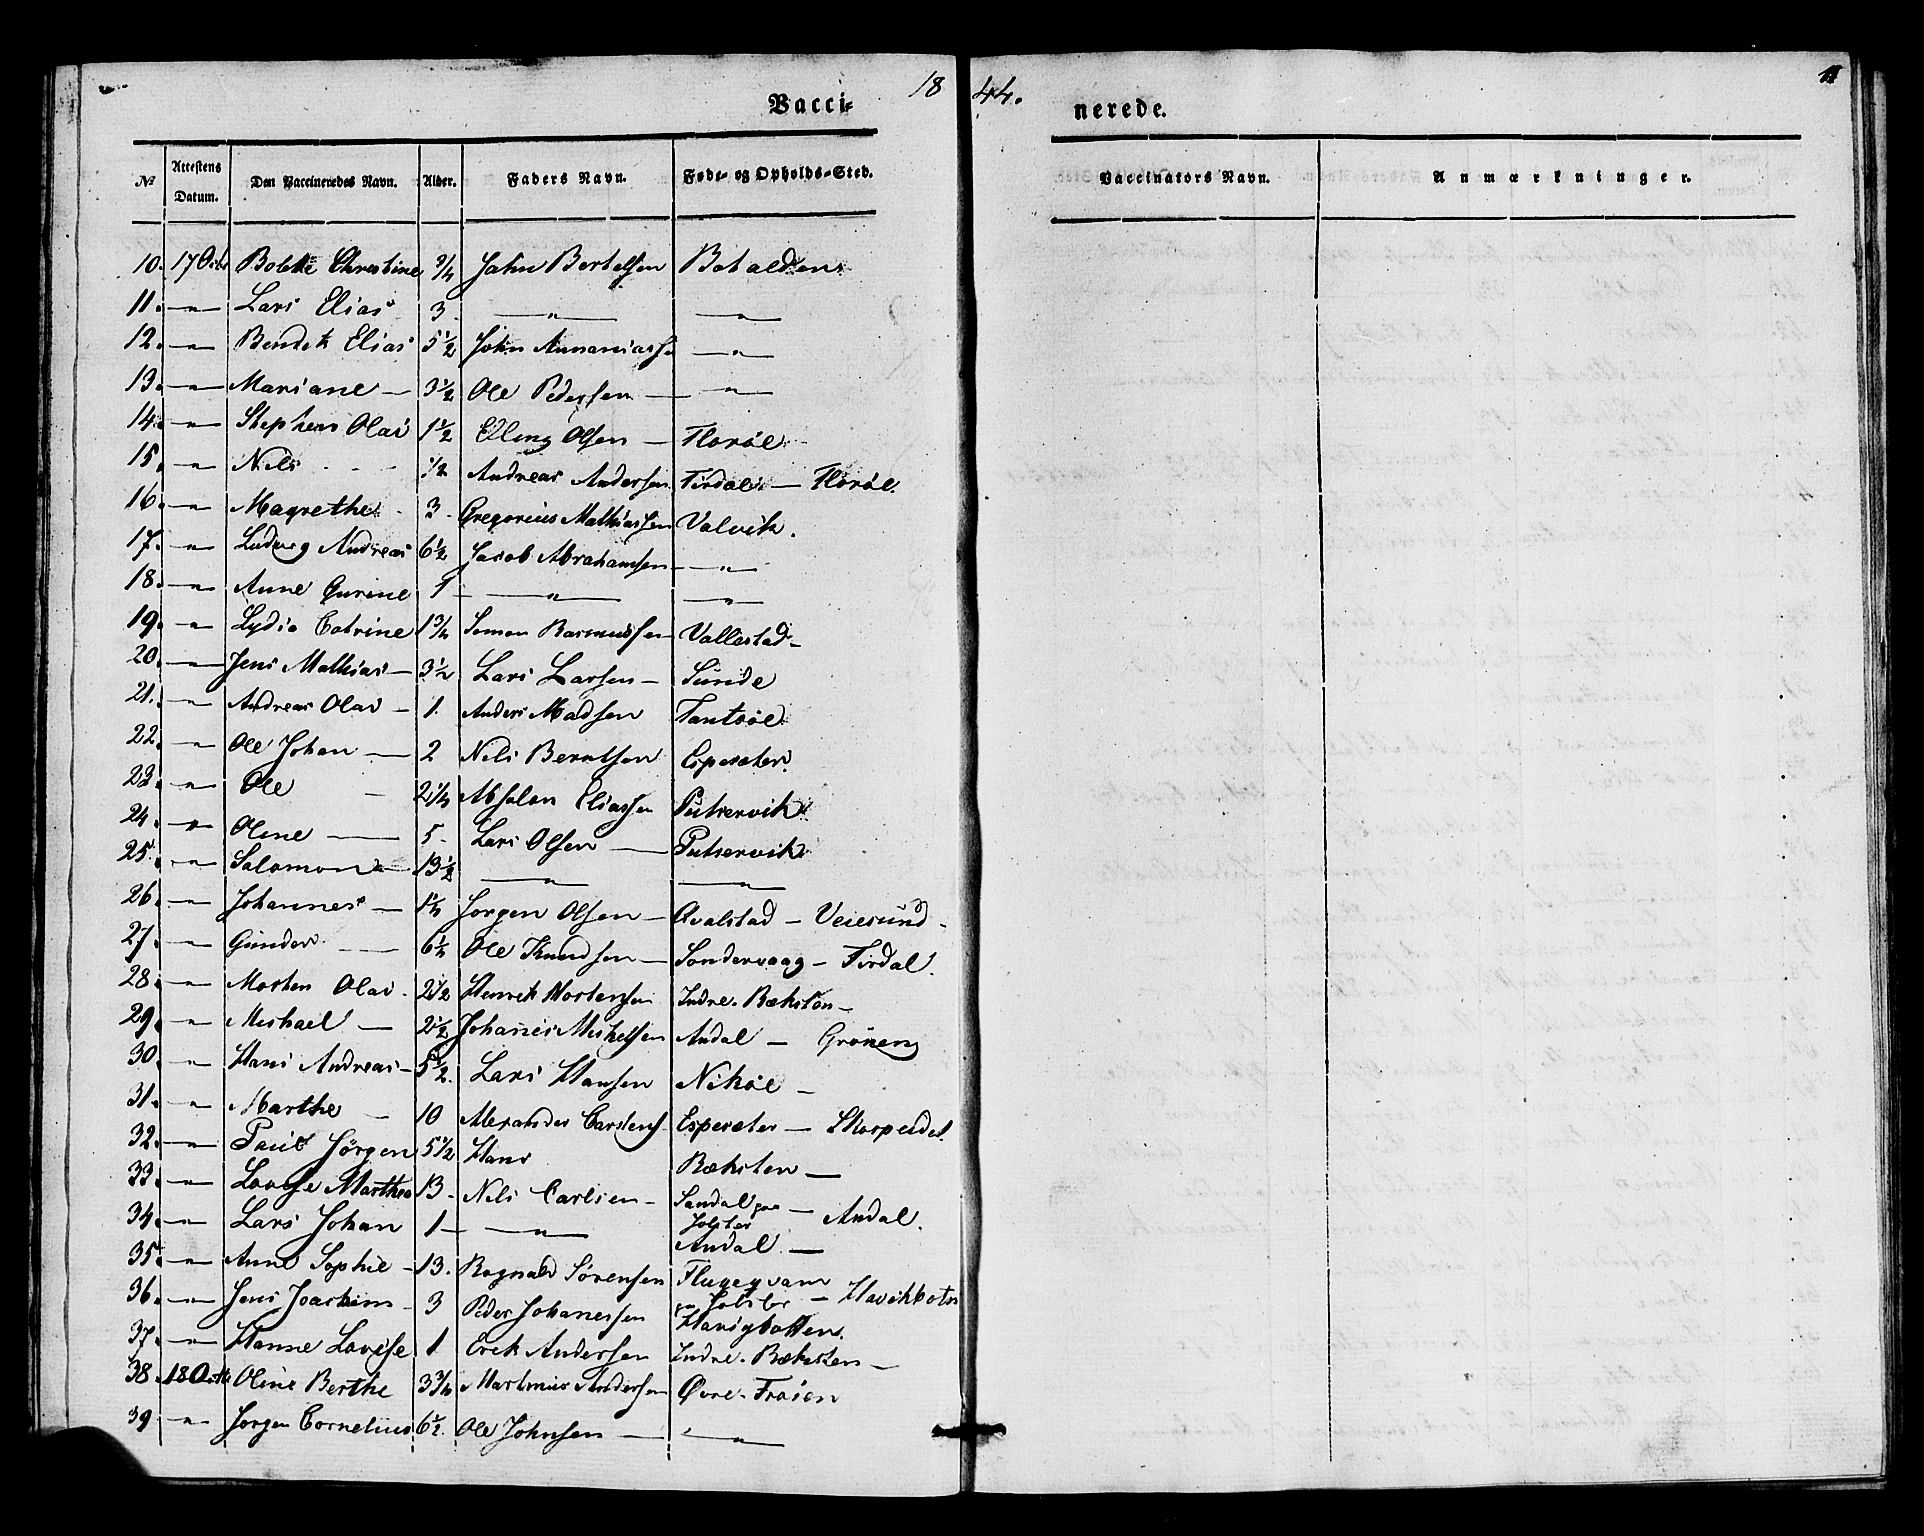 1844.
11
Vaccinerede.
№ | Attestens Datum. | Den Vaccineredes Navn. | Alder. | Faders Navn. | Føde- og Opholds-Sted. | Vaccinators Navn. | Anmærkninger.
10. 17 Octbr Bolette Christine 3/4 Jahn Bertelsen Batalden
11. —"— Lars Elias 3 —"— —"—
12. —"— Bendek Elias 5 1/2 John Annaniasse —"—
13. —"— Mariane — 3 1/2 Ole Pedersen — —"—
14. —"— Stephens Olai 1 1/2 Elling Olsen — Florøe
15. —"— Nils - - - 1/2 Andreas Andersen Firdal — Florøe
16. —"— Magrethe - 3 - Gregorius Mathiassen Valvik.
17. —"— Ludvig Andreas 6 1/2 Jacob Abrahamsen —"—
18. —"— Anne Gurine 1 —"— —"—
19. —"— Lydia Catrine 1 3/4 Simon Rasmussen Vallestad —
20. —"— Jens Mathias — 3 1/2 Lars Larsen — Sunde
21. —"— Andreas Olai — 1. Anders Madsen Tantøe
22. —"— Ole Johan — 2 Nils Berntsen Espeseter.
23. —"— Ole — 2 1/4 Absalon Eliassen Putservik
24. —"— Oline — 5 - Lars Olsen — Putservik
25. —"— Salomon — 13 1/2 —"— —"—
26. —"— Johannes — 1/4 Jørgen Olsen — Qvalstad — Veiesund -
27. —"— Gunder — 6 1/2 Ole Knudsen — Sondervaag — Firdal.
28. —"— Morten Olai - 2 1/2 Henrik Mortensen Indre Bæksten —
29. —"— Mishael — 2 1/2 Johanes Mishelsen Andal — Grønen
30. —"— Hans Andreas — 5 1/2. Lars Hansen Nikøe —
31. —"— Marthe — 10 Alexander Carstens Espeseter — Skorpeidet
32. —"— Paul Jörgen 5 1/2 Hans Bæksten —
33. —"— Lovise Marthea 13 - Nils Carlsen — Sandal paa Jolster — Andal.
34. —"— Lars Johan 1 — —"— Andal —
35. —"— Anne Sophie — 13. Ragnald Sörensen Flugeqvam paa Jolster — Havikbotn
36. —"— Jens Joachim — 3 Peder Johanessen Havigbotten.
37. —"— Hanne Lovise 1 Erek Andersen Indre Bæksten —
38. 18 Octb Oline Berthe 3 3/4 Martinus Andersen Øvre Frøien
39 —"— Jorgen Cornelius 6 1/2. Ole Johnsen — —"—